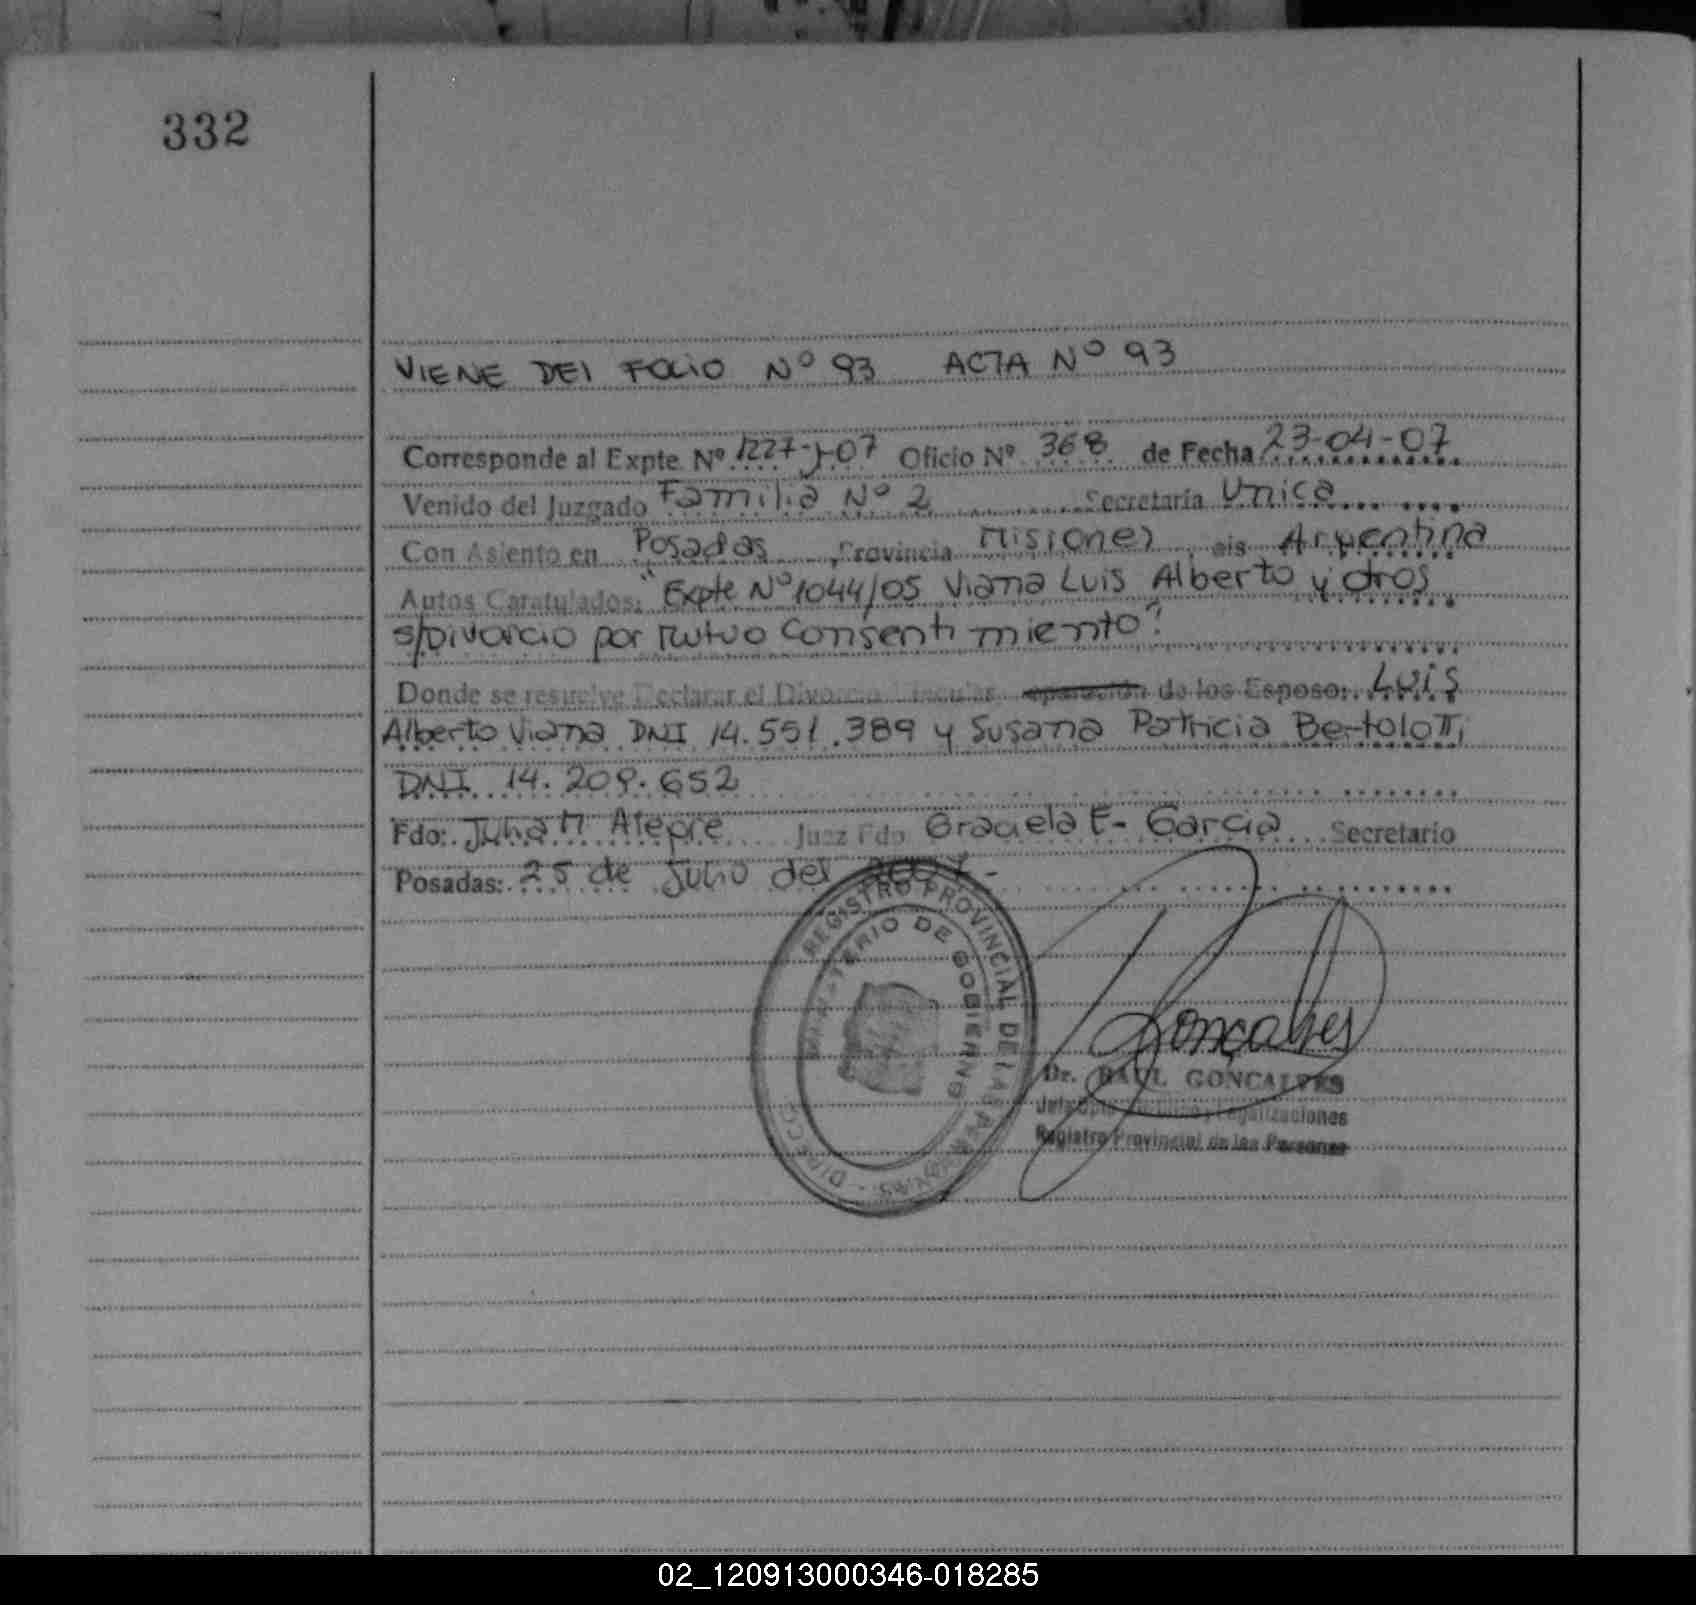 332
VIENE DEL FOLIO Nº 93 ACTA Nº 93
Corresponde al Expte. Nº 1227-J-07 Oficio Nº 368 de Fecha 23-04-07
Venido del Juzgado Familia Nº 2 Secretaría Unica
Con Asiento en Posadas, Provincia Misiones, ais Argentina
Autos Caratulados: "Expte Nº 1044/05 Viana Luis Alberto y otros
s/Divorcio por Mutuo Consentimiento".
Donde se resuelve Declarar el Divorcio Vincular eparación de los Esposos: Luis
Alberto Viana DNI 14.551.389 y Susana Patricia Bertolotti
DNI 14.209.652
Fdo: Julia M Alegre Juez Fdo Graciela E- Garcia Secretario
Posadas: 25 de Julio del 2007-
REGISTRO PROVINCIAL DE LAS PERSONAS - DIRECC
MINISTERIO DE GOBIERNO
Goncalves
Dr. RAUL GONÇALVES
Legalizaciones
Registro Provincial de las Personas
02_120913000346-018285